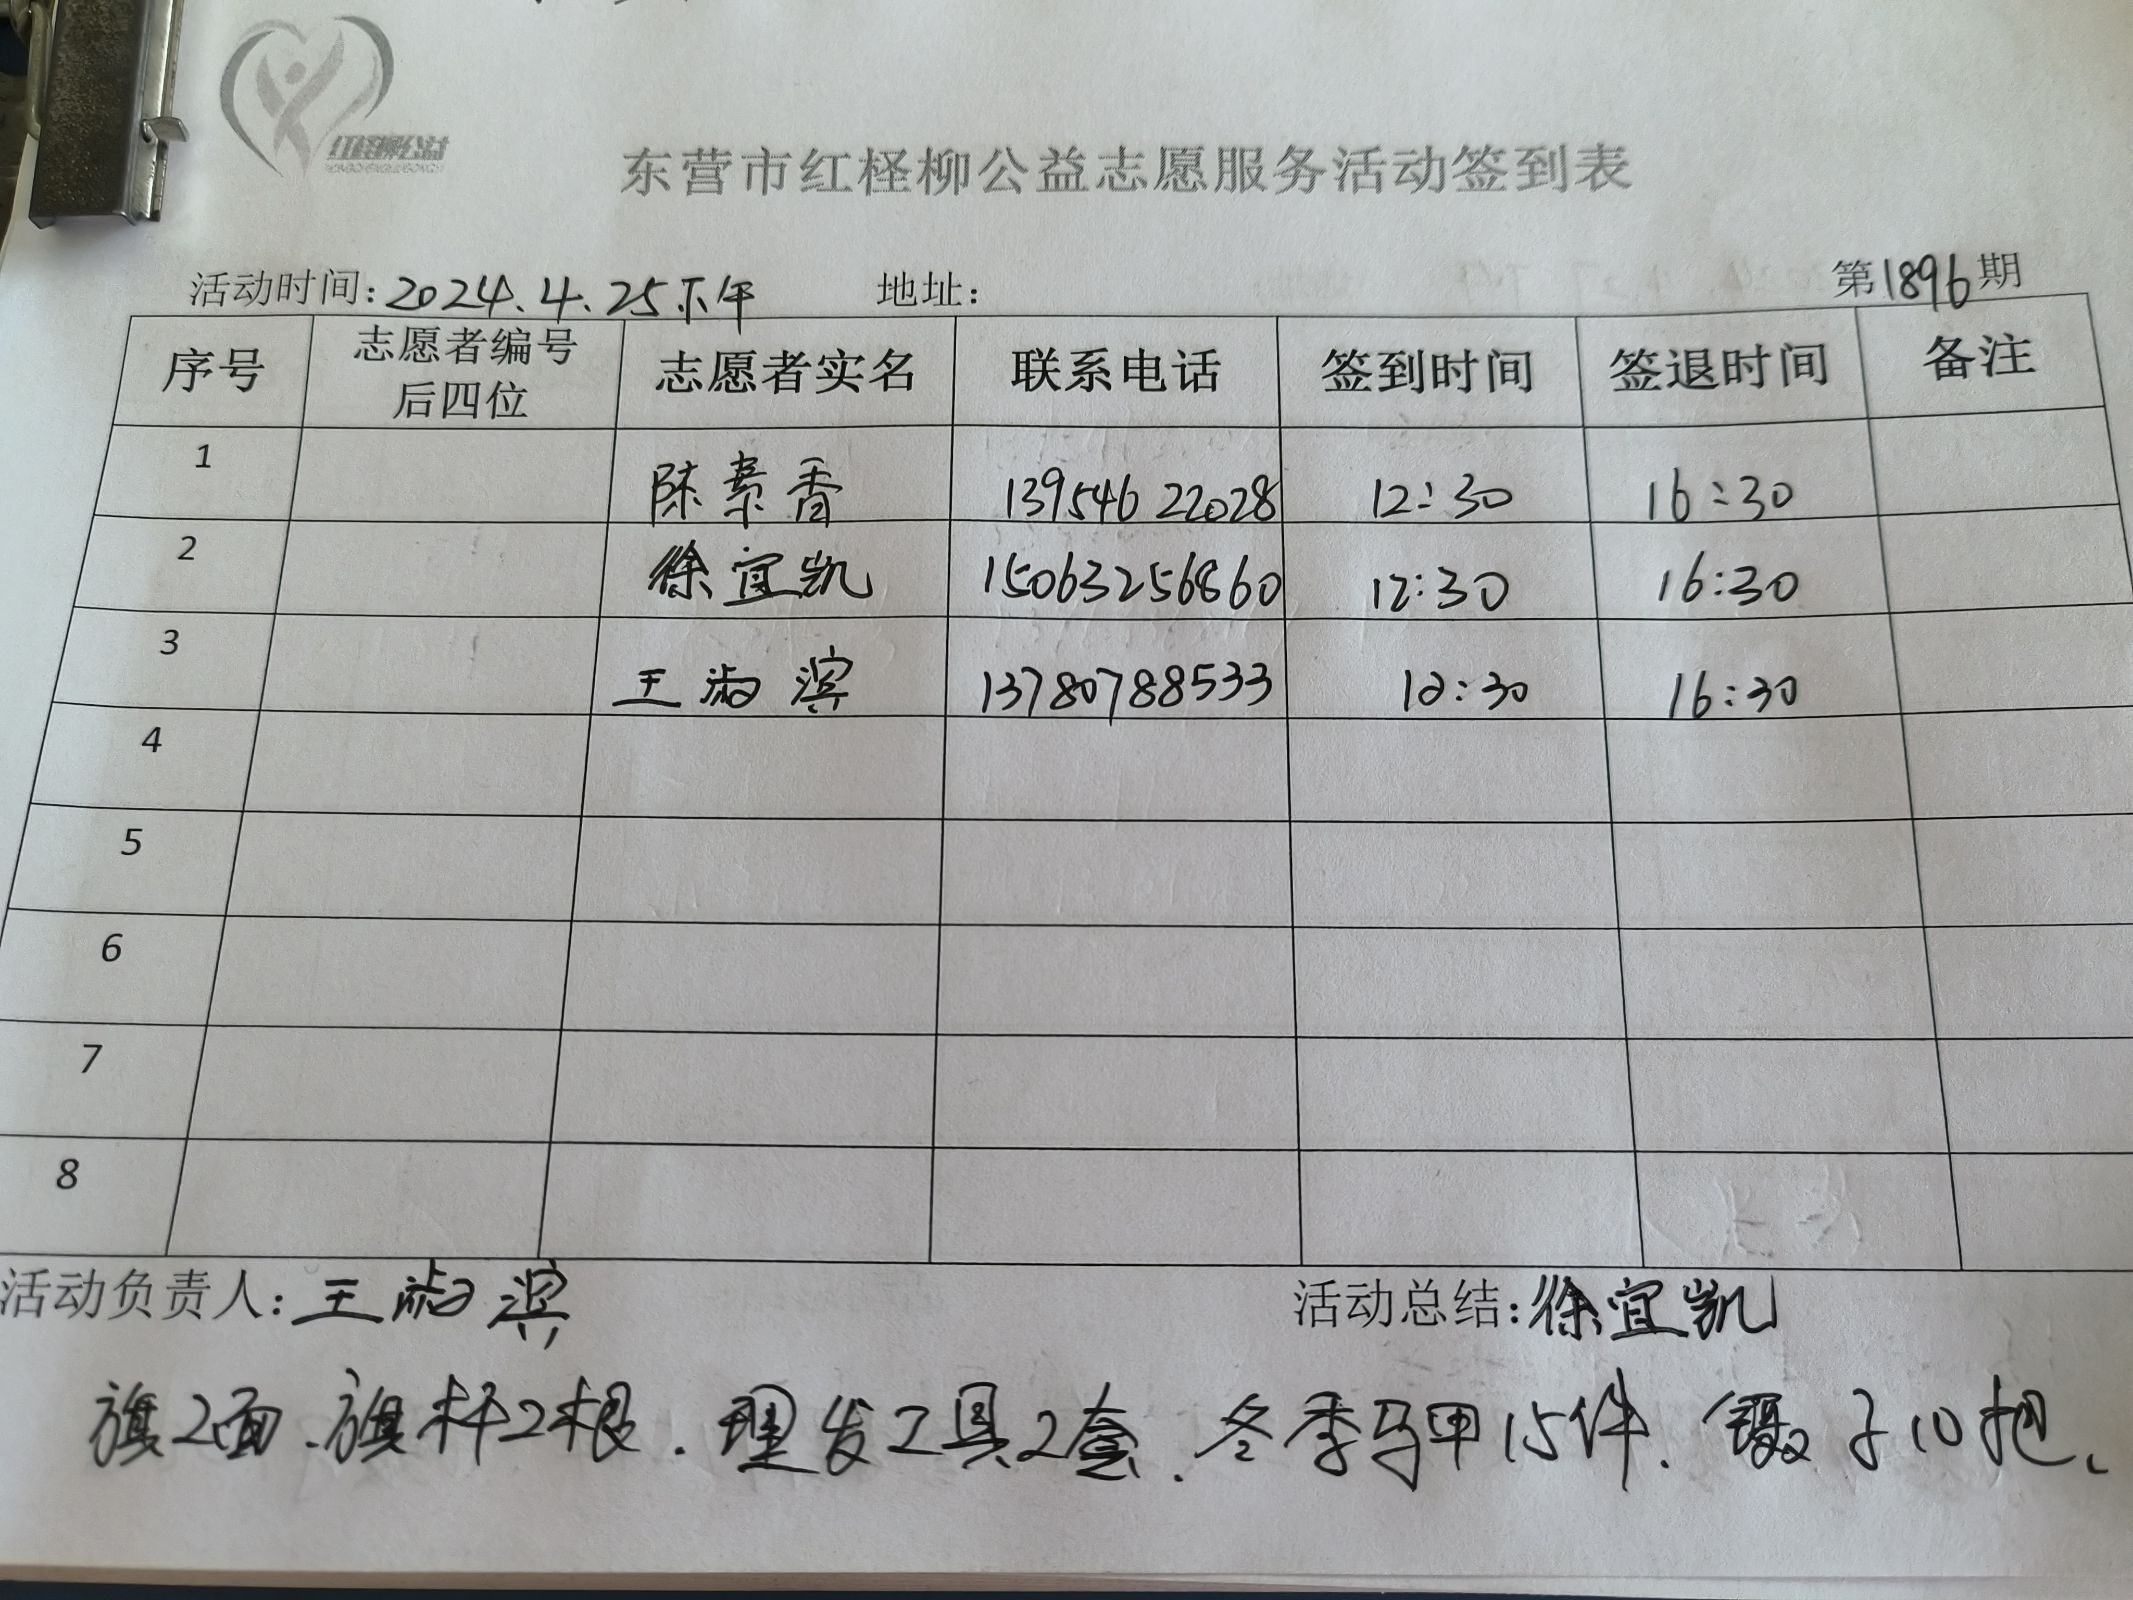 红柽柳公益
东营市红柽柳公益志愿服务活动签到表
活动时间: 2024.4.25下午 地址: 第1896期
序号 志愿者编号后四位 志愿者实名 联系电话 签到时间 签退时间 备注
1 陈素香 13954622028 12:30 16:30
2 徐宜凯 15063256860 12:30 16:30
3 王淑滨 13780788533 12:30 16:30
4
5
6
7
8
活动负责人: 王淑滨 活动总结: 徐宜凯
旗2面、旗杆2根、理发工具2套、冬季马甲15件、镊子10把、